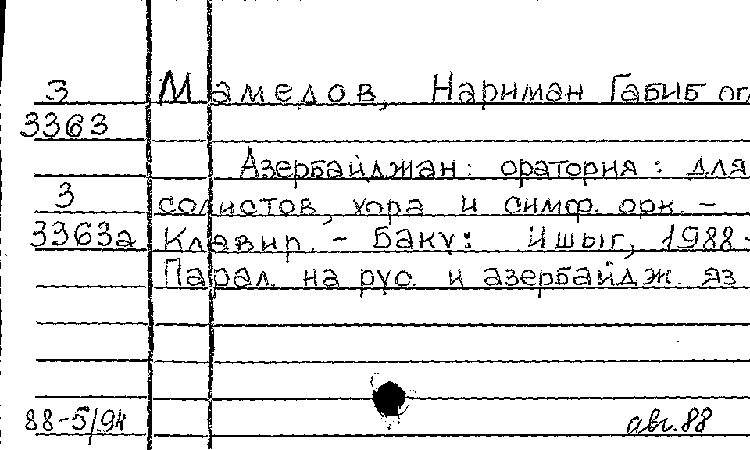 З Мамедов, Нариман Габиб ог
3363
Азербайджан: оратория: для
З солистов, хора и симф. орк. –
3363а Клавир. – Баку: Ишыг, 1988 –
Парал. на рус. и азербайдж. яз
88-5/94 авг. 88